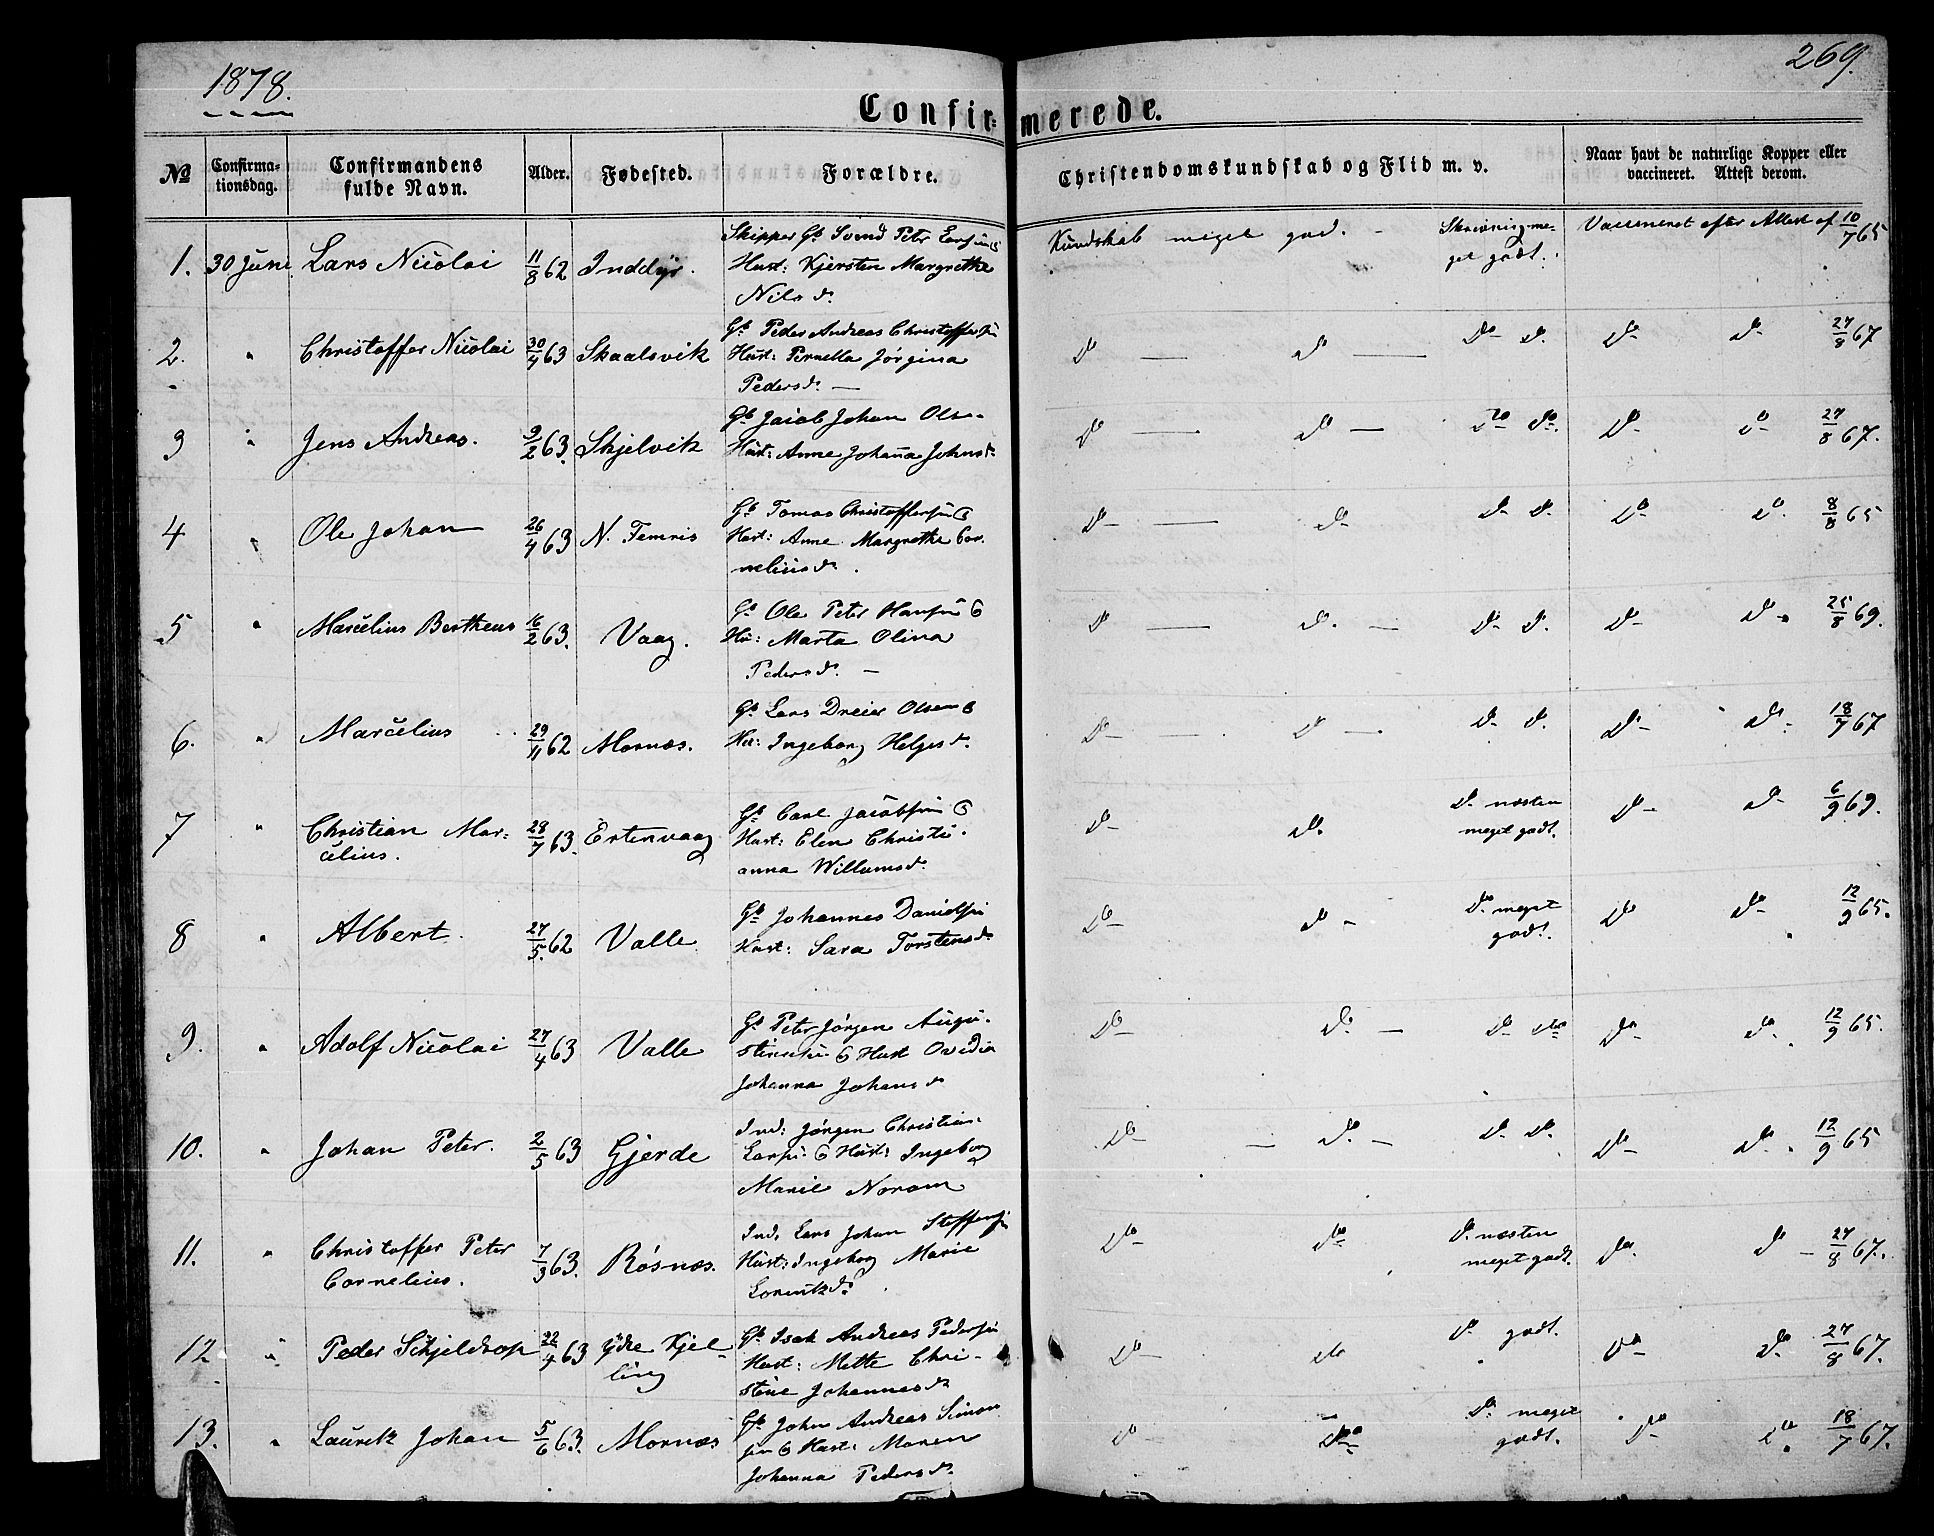 1878.
269.
Confir=merede.
No
Confirma-
tionsdag.
Confirmandens
fulde Navn.
Alder.
Fødested.
Forældre.
Christendomskundskab og Flid m. v.
Naar havt de naturlige Kopper eller
vaccineret. Attest derom.
1. 30 Juni Lars Nicolai 11/8 62 Inddyr.
Skipper Gb Svend Peter
Hust: Kjersten Margrethe
Nils d.
Kundskab meget god. - Skrivning me-
get godt. Vaccineret efter Attest af 10/7 65
2. " Christoffer Nicolai 30/4 63 Skaalsvik
Gb Peder Andreas Christoffersn
Hust: Pernella Jørgina
Pedersd. —
do — do — do do. do do 27/8 67
3 " Jens Andreas. 9/2 63. Skjelvik
Gb Jacob Johan Olsn
Hust: Anne Johanna Johnsd.
do — do — do do. do do 27/8 67.
4 " Ole Johan 26/4 63 N. Temris
Gb Tomas Christoffersn &
Hust: Anne Margrethe Cor
neliusd.
do — do do do. do do. 8/8 65
5 " Marcelius Bertheus 16/2 63. Vaag.
Gb Ole Peter Hansen &
Hu: Marta Olina
Pedersd. —
do — do. — do do. do do 25/8 69.
6. " Marcelius 29/11 62 Mornæs.
Gb Lars Dreier Olsen &
Hu: Ingeborg Helgesd.
do — do — do do. do do. 18/7 67
7 " Christian Mar-
celius. 28/7 63. Ertenvaag
Gb Carl Jacobsen &
Hust: Elen Christi-
anna Willumsd.
do do. do næsten
meget godt. do do 6/9 69.
8 " Albert 27/5 62 Valle
Gb Johannes Danielsn
Hust: Sara Torstensd.
do do - do meget
godt. do do 12/9 65.
9. " Adolf Nicolai 27/4 63 Valle
Gb Peter Jørgen Augu-
stinusn & Hust Ovidia
Johanna Johansd.
do do — do do do do. 12/9 65.
10. " Johan Peter. 2/5 63 Gjerde
Ind: Jørgen Christian
Larsn & Hust: Ingeborg
Marie Noram
do — do. — do do. do do. 12/9 65
11. " Christoffer Peter
Cornelius. 7/3 63. Røsnæs.
Ind. Lars Johan Steffensn
Hust: Ingeborg Marie
Lorentzd.
do do do næsten
meget godt. do. do - 27/8 67.
12 " Peder Schjeldrop 22/4 63 Ydre Kjel-
ling
Gb Isak Andreas Pedersn
Hust: Mette Chri-
stine Johannesd.
do do do godt. do do 27/8 67.
13. " Lauritz Johan 5/6 63. Mornæs
Gb John Andreas Simon
sn & Hust: Maren
Johanna Pedersd.
do do do. meget
godt. do do. 18/7 67.